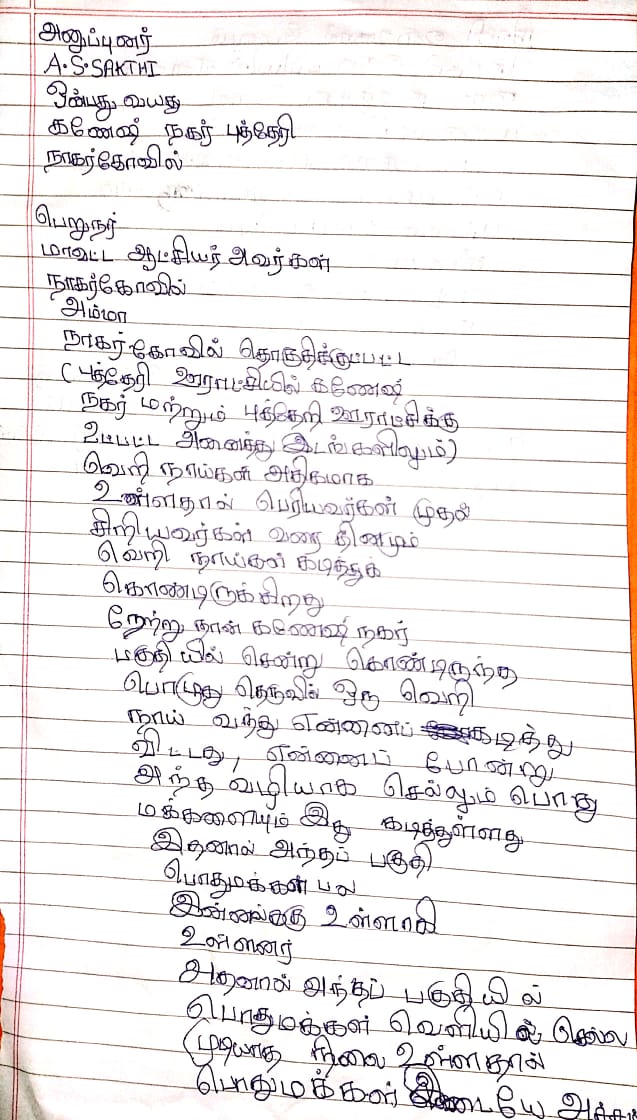 அனுப்புனர்
A.S.SAKTHI
ஒன்பது வயது
கணேஷ் நகர் புத்தேரி
நாகர்கோவில்
பெறுநர்
மாவட்ட ஆட்சியர் அவர்கள்
நாகர்கோவில்
அம்மா
நாகர்கோவில் தொகுதிக்குட்பட்ட
(புத்தேரி ஊராட்சியில் கணேஷ்
நகர் மற்றும் புத்தேறி ஊராட்சிக்கு
உட்பட்ட அனைத்து இடங்களிலும்)
வெறி நாய்கள் அதிகமாக
உள்ளதால் பெரியவர்கள் முதல்
சிறியவர்கள் வரை தினமும்
வெறி நாய்கள் கடித்துக்
கொண்டிருக்கிறது
நேற்று நான் கணேஷ் நகர்
பகுதியில் சென்று கொண்டிருந்த
பொழுது தெருவில் ஒரு வெறி
நாய் வந்து என்னைப் கடித்து
விட்டது, என்னைப் போன்று
அந்த வழியாக செல்லும் பொது
மக்களையும் இது கடித்துள்ளது
இதனால் அந்தப் பகுதி
பொதுமக்கள் பல
இன்னலுக்கு உள்ளாகி
உள்ளனர்
அதனால் அந்தப் பகுதியில்
பொதுமக்கள் வெளியில் செல்ல
முடியாத நிலை உள்ளதால்
பொதுமக்கள் இடையே